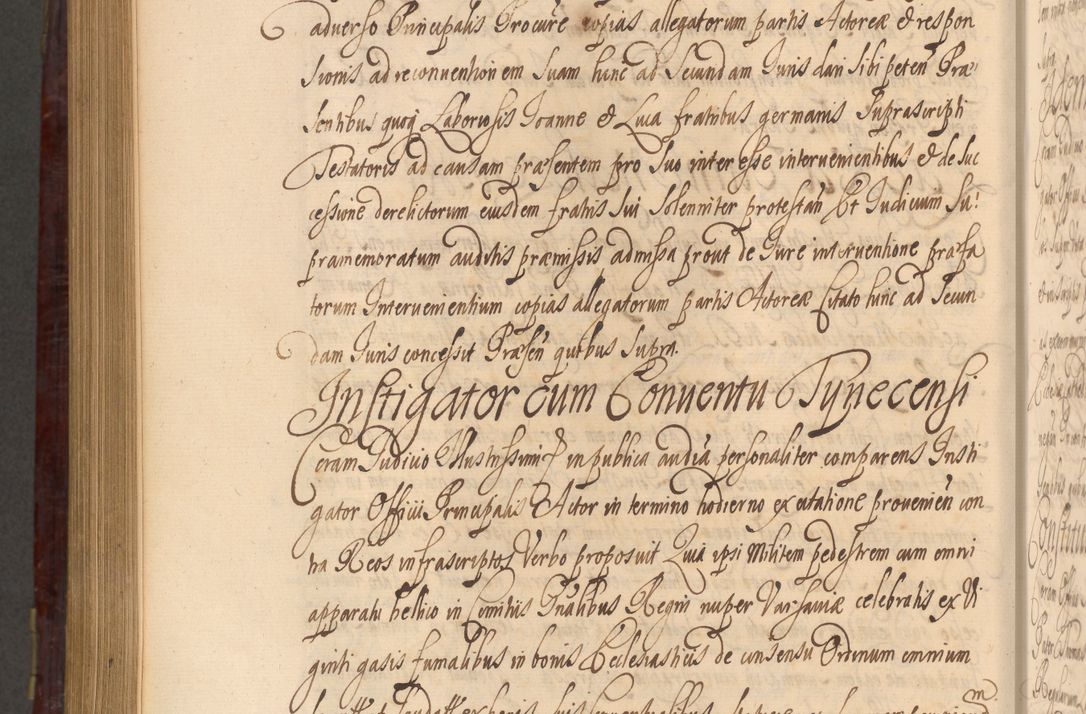 adverso Principalis Procure copias allegatorum partis Actoreæ et respon
sionis ad reconventionem suam hinc ad Secundam Iuris dari sibi peten Præ
sentibus quoq Laboriosis Ioanne et Luca fratribus germanis Suprascripti
Testatoris ad causam præsentem pro suo interesse intervenientibus et de suc
cessione derelictorum eiusdem fratris sui solenniter protestan Et Iudicium Su!
pramemoratum auditis præmissis admissa prout de Iure interventione præfa
torum Intervenientium copias allegatorum partis Actoreæ Citato hinc ad Secun
dam Iuris concessit Præsen quibus supra.
Instigator cum Conventu Tynecensi
Coram Iudicio Illustrissimi in publica audia personaliter comparens Insti
gator Officii Principalis Actor in termino hodierno ex citatione provenien con
tra Reos infrascriptos Verbo proposuit Quia ipsi Militem pedestrem cum omni
apparatu bellico in Comitiis Gnalibus Regni nuper Varsaviæ celebratis ex Vi
ginti gasis fumalibus in bonis Ecclesiasticis de consensu Ordinum omnium